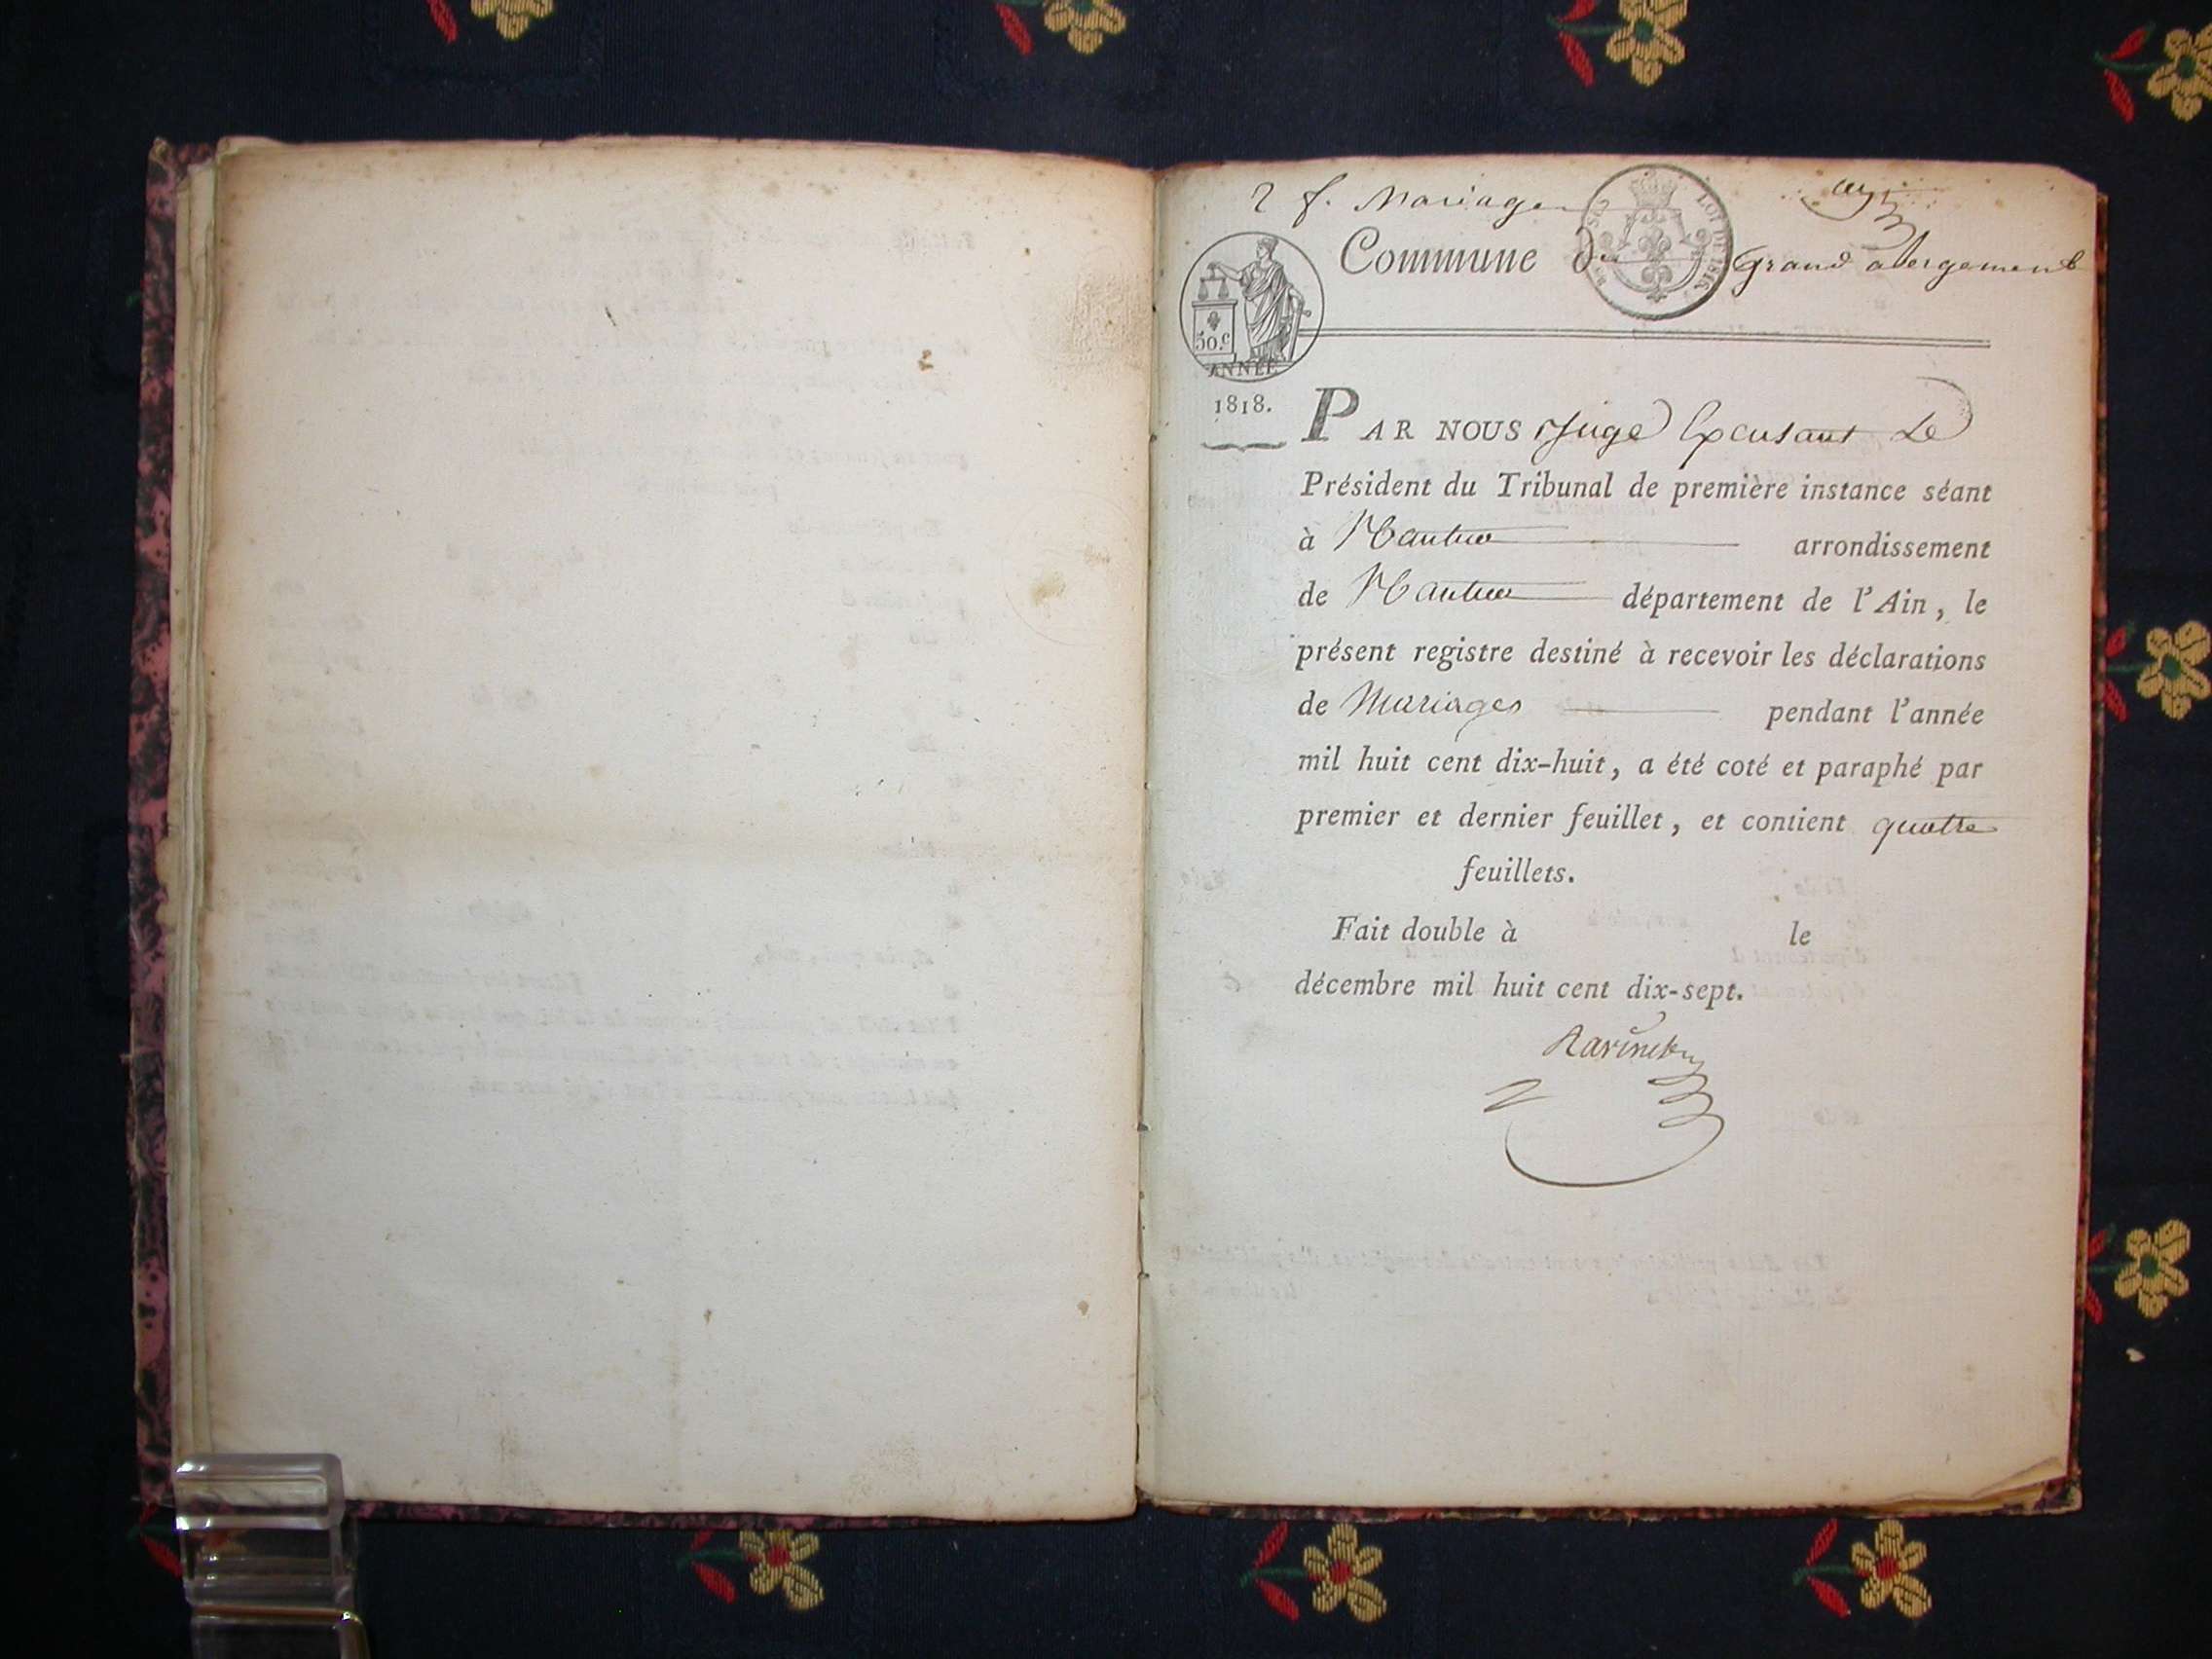 2 f. Mariage
Commune du Grand abergement
LOI DE 1816
50.c
ANNÉE
1818.
PAR NOUS Juge Excusant Le
Président du Tribunal de première instance séant
à Nantua arrondissement
de Nantua département de l'Ain, le
présent registre destiné à recevoir les déclarations
de Mariages pendant l'année
mil huit cent dix-huit, a été coté et paraphé par
premier et dernier feuillet, et contient quatre
feuillets.
Fait double à le
décembre mil huit cent dix-sept.